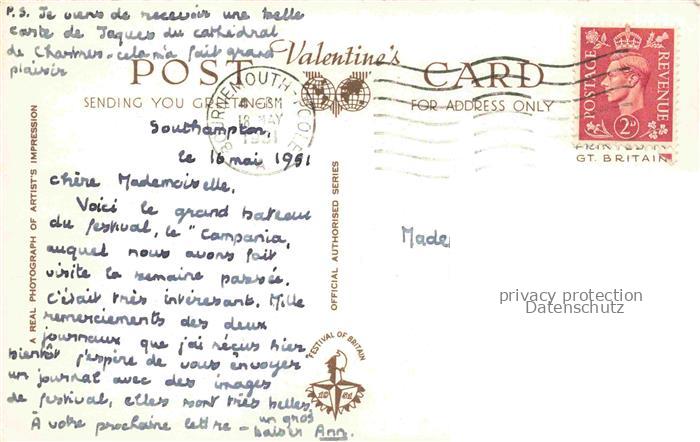 P.S. Je viens de recevoir une belle
carte de Jaques du cathédral
de Chartres - cela m'a fait grand
plaisir
Valentine's
POST CARD
SENDING YOU GREETINGS
FOR ADDRESS ONLY
BOURNEMOUTH - POOLE
18 MAY
1951
POSTAGE REVENUE
2D
PRINTED IN
GT. BRITAIN
Southampton,
le 16 mai 1951
Chère Mademoiselle,
Voici le grand bateau
du festival, le "Campania,
auquel nous avons fait
visite la semaine passée.
C'était très intéresant. Mille
remerciements des deux
journaux que j'ai récus hier
bientôt j'espère de vous envoyer
un journal avec des images
de festival, elles sont très belles.
À votre prochaine lettre - un gros
baiser Ann.
A REAL PHOTOGRAPH OF ARTIST'S IMPRESSION
OFFICIAL AUTHORISED SERIES
FESTIVAL OF BRITAIN
19 51
Made
privacy protection
Datenschutz